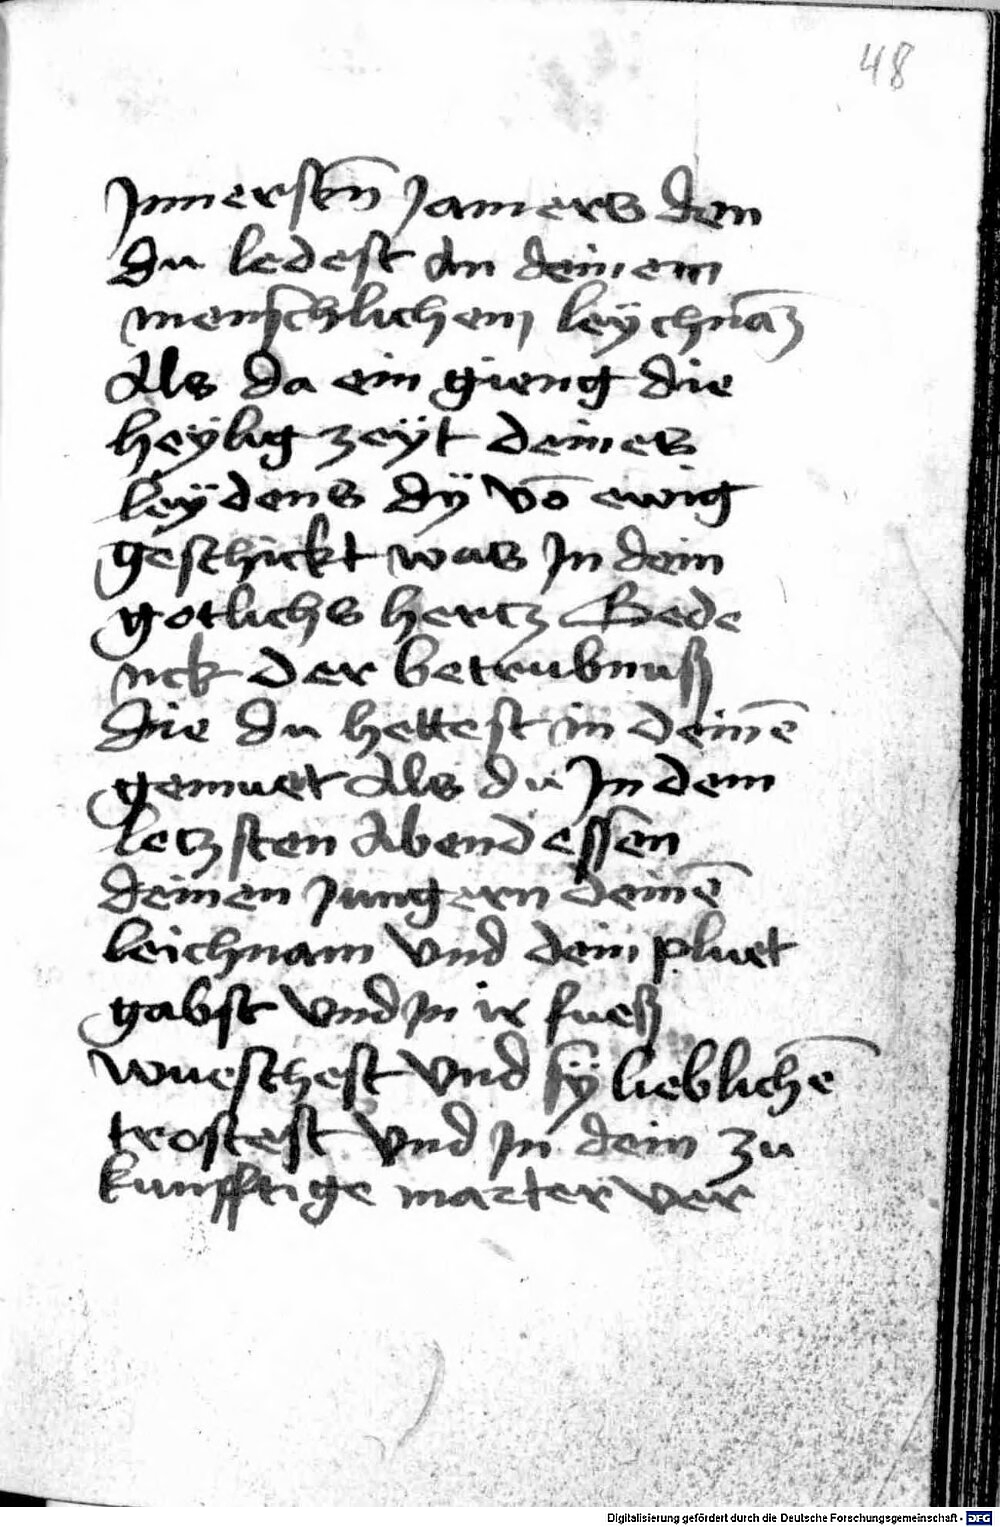 48
Jnnerstn̄ Jamers den
du ledest an deinem
menschlichem leÿchnaʒ
Als da ein gieng die
heÿlig zeÿt deines
leÿdens dÿ vō ewig
geschickt was Jn dein
gotlichs hertz Bede
nck der betrubnuß
die du hettest in deinē
gemuet Als du Jn dem
letzsten Abendessen
deinen Jungern deinē
leichnam vnd dein pluet
gabst vnd Jn ir fueß
wueschest vnd sÿ lieblichē
trostest vnd Jn dein zu
kunfftige marter ver
Digitalisierung gefördert durch die Deutsche Forschungsgemeinschaft - DFG